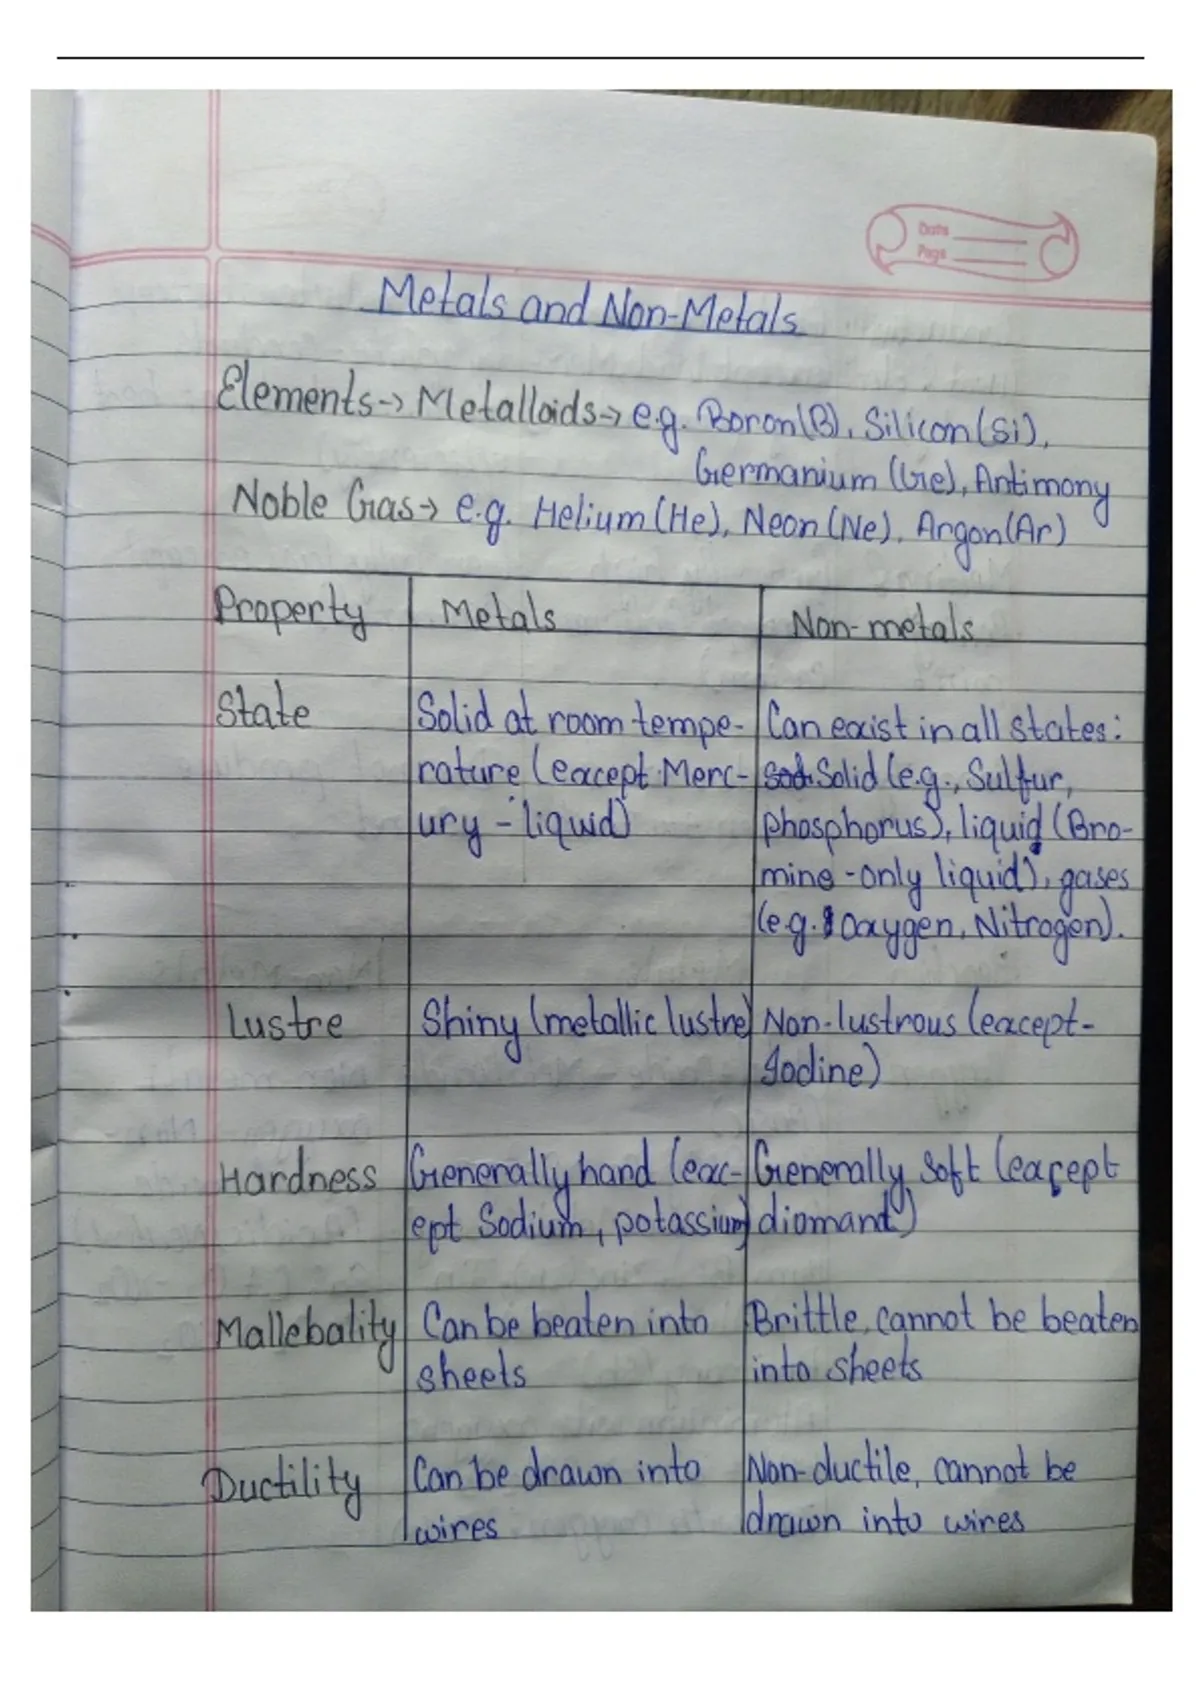 Date
Page
Metals and Non-Metals
Elements→ Metalloids→ e.g. Boron(B), Silicon(Si),
Germanium (Ge), Antimony
Noble Gas→ e.g. Helium(He), Neon(Ne), Argon(Ar)
Property Metals Non-metals
State Solid at room tempe- Can exist in all states:
rature (except Merc- Solid (e.g., Sulfur,
ury - liquid) phosphorus), liquid (Bro-
mine - only liquid), gases
(e.g. Oxygen, Nitrogen).
Lustre Shiny (metallic lustre) Non-lustrous (except-
Iodine)
Hardness Generally hard (exc- Generally Soft (except
ept Sodium, potassium) diomand)
Mallebality Can be beaten into Brittle, cannot be beaten
sheets into sheets
Ductility Can be drawn into Non-ductile, cannot be
wires drawn into wires